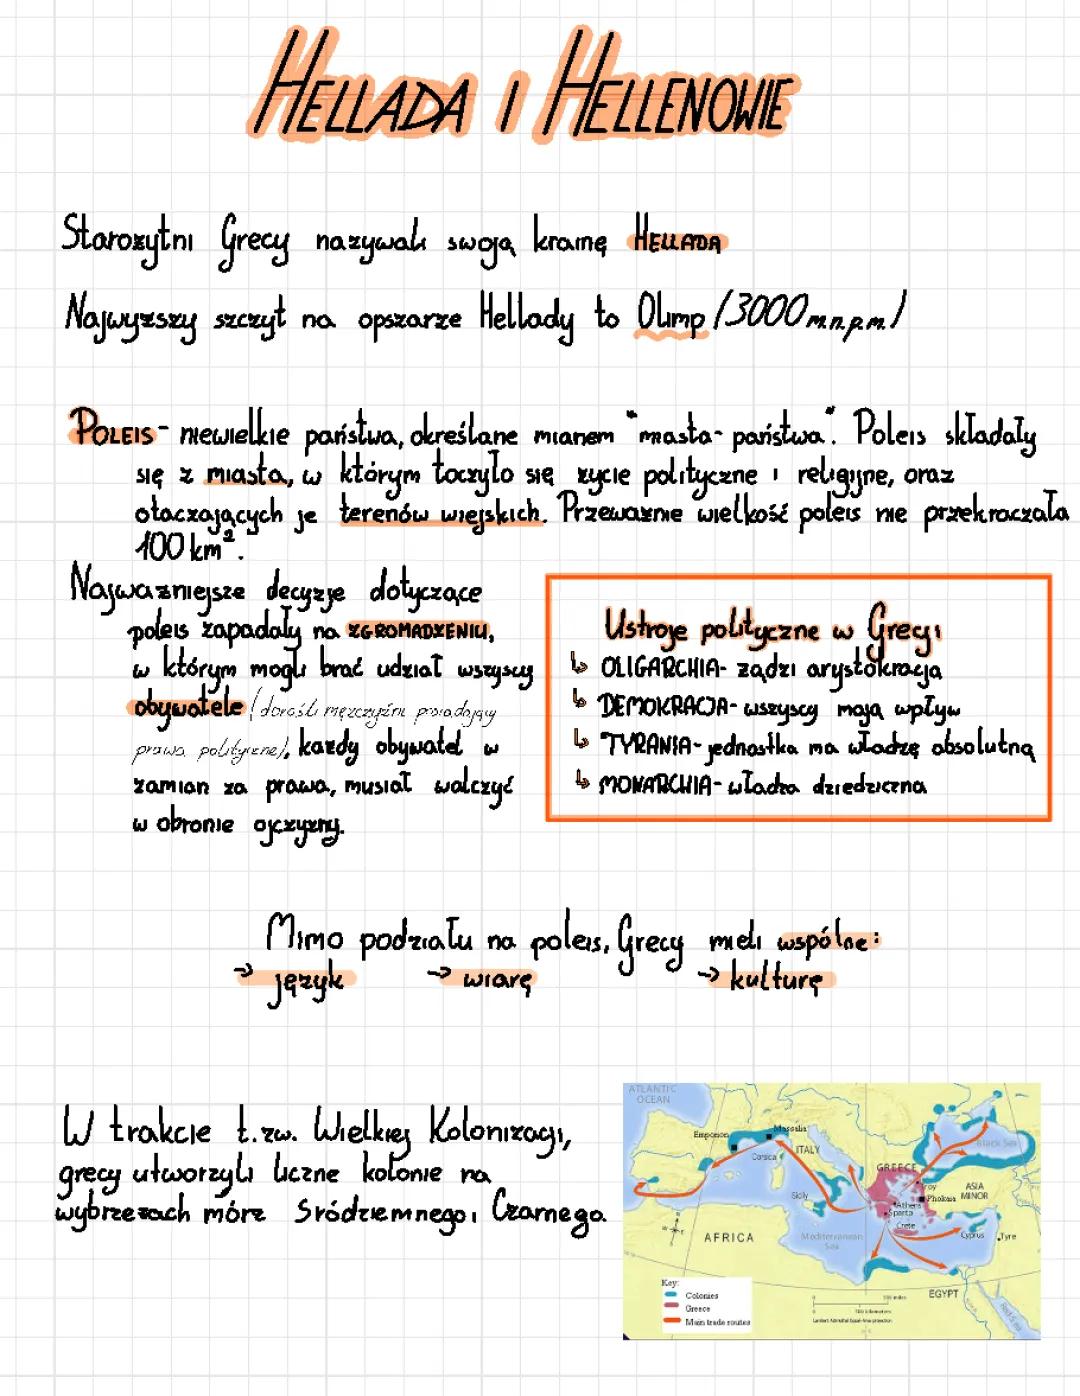 HELLADA I HELLENOWIE
Starozytni Grecy nazywali swoją krainę HELLADĄ
Najwyzszy szczyt na opszarze Hellady to Olimp /3000 m.n.p.m./
POLEIS - niewielkie państwa, określane mianem "miasta-państwa". Poleis składały
się z miasta, w którym toczyło się zycie polityczne i religijne, oraz
otaczających je terenów wiejskich. Przewaznie wielkość poleis nie przekraczała
100 km².
Najwazniejsze decyzje dotyczące
poleis zapadały na ZGROMADZENIU,
w którym mogli brać udział wszyscy
obywatele (dorośli mężczyźni posiadający
prawa polityczne), kazdy obywatel w
zamian za prawa, musiał walczyć
w obronie ojczyzny.
Ustroje polityczne w Grecji
↳ OLIGARCHIA- ządzi arystokracja
↳ DEMOKRACJA- wszyscy mają wpływ
↳ TYRANIA- jednostka ma władzę absolutną
↳ MONARCHIA- władza dziedziczna
Mimo podziału na poleis, Grecy mieli wspólne:
→ język → wiarę → kulturę
W trakcie t.zw. Wielkiej Kolonizacji,
grecy utworzyli liczne kolonie na
wybrzezach mórz Śródziemnego i Czarnego.
ATLANTIC
OCEAN
Emporion
Massalia
Corsica
ITALY
Black Sea
GREECE
Troy
ASIA
MINOR
Phokaia
Sicily
Athens
Sparta
Crete
Cyprus
Tyre
AFRICA
Mediterranean
Sea
EGYPT
Red Sea
Key:
Colonies
Greece
Main trade routes